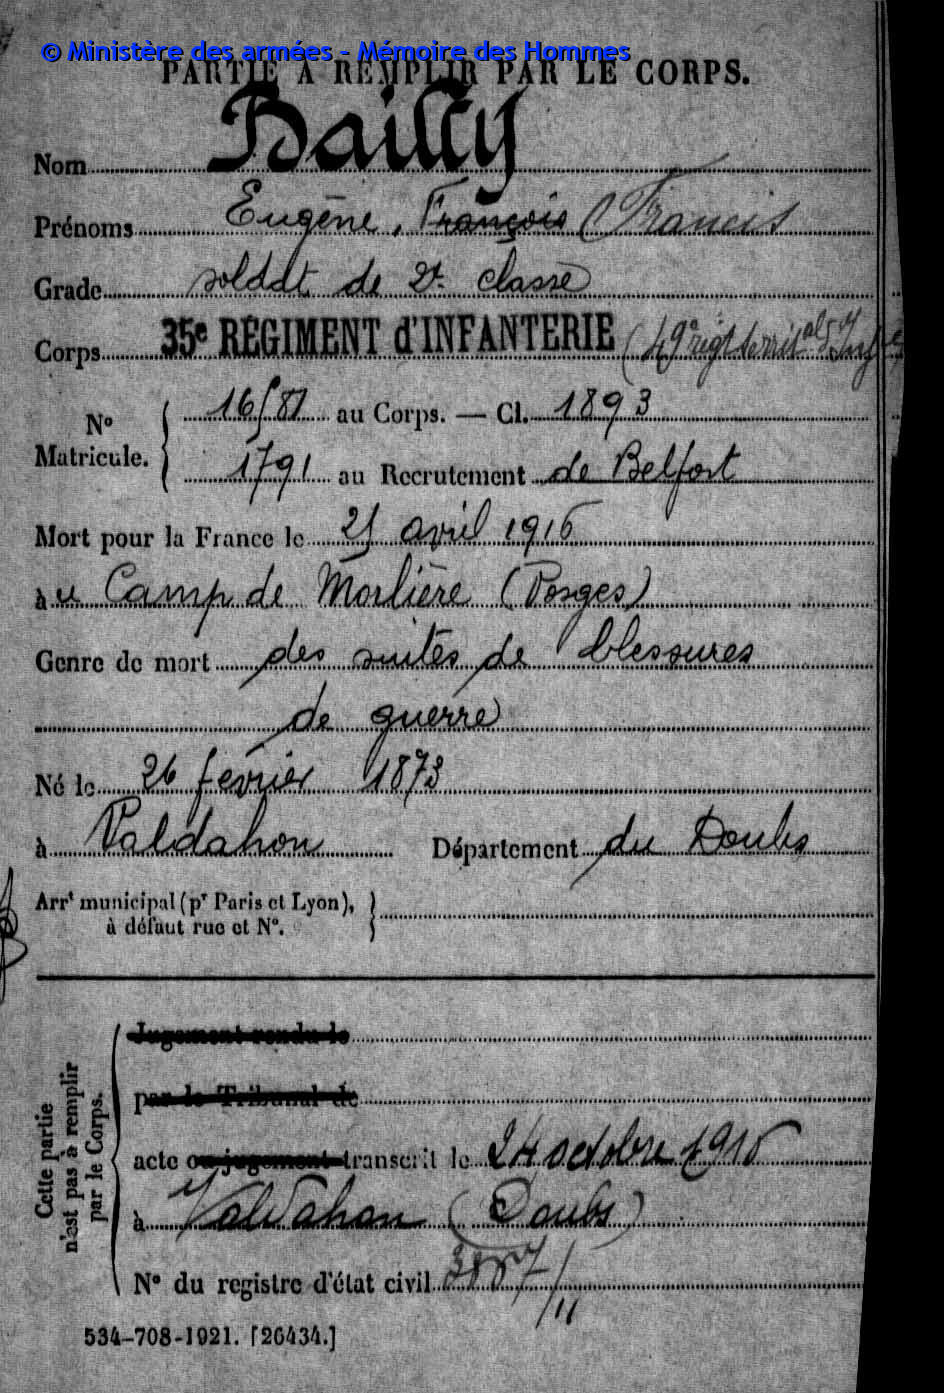 © Ministère des armées - Mémoire des Hommes
PARTIE A REMPLIR PAR LE CORPS.
Nom Bailly
Prénoms Eugène, François (Francis
Grade soldat de 2e classe
Corps 35e RÉGIMENT d'INFANTERIE (49e régt territal d'Infie
No Matricule. 16/81 au Corps. — Cl. 1893
1791 au Recrutement de Belfort
Mort pour la France le avril 1916
à u Camp de Morlière (Vosges)
Genre de mort des suites de blessures
de guerre
Né le 26 février 1873
à Valdahon Département du Doubs
Arrt municipal (pr Paris et Lyon),
à défaut rue et No.
Cette partie n'est pas à remplir par le Corps.
Jugement rendu le
par le Tribunal de
acte ou jugement transcrit le 24 octobre 1916
à Valdahon (Doubs)
No du registre d'état civil
534-708-1921. [26434.]